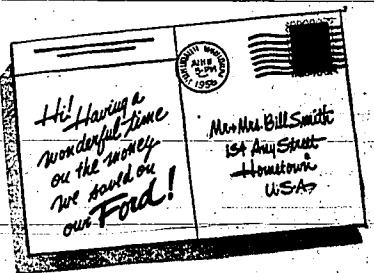 Hi! Having a
wonderful time
on the money
we saved on
our Ford!
JUN 8
5-PM
1956
Mr+Mrs. Bill Smith
134 Any Street
Hometown
U.S.A.